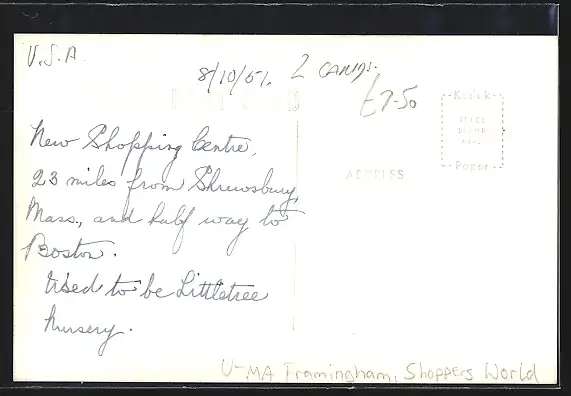 U.S.A.
8/10/51. 2 CARDS.
£7-50
Kodak
PLACE
STAMP
HERE
Paper
ADDRESS
New Shopping Centre,
23 miles from Shrewsbury,
Mass., and half way to
Boston.
Used to be Littletree
Nursery.
U-MA Framingham, Shoppers World